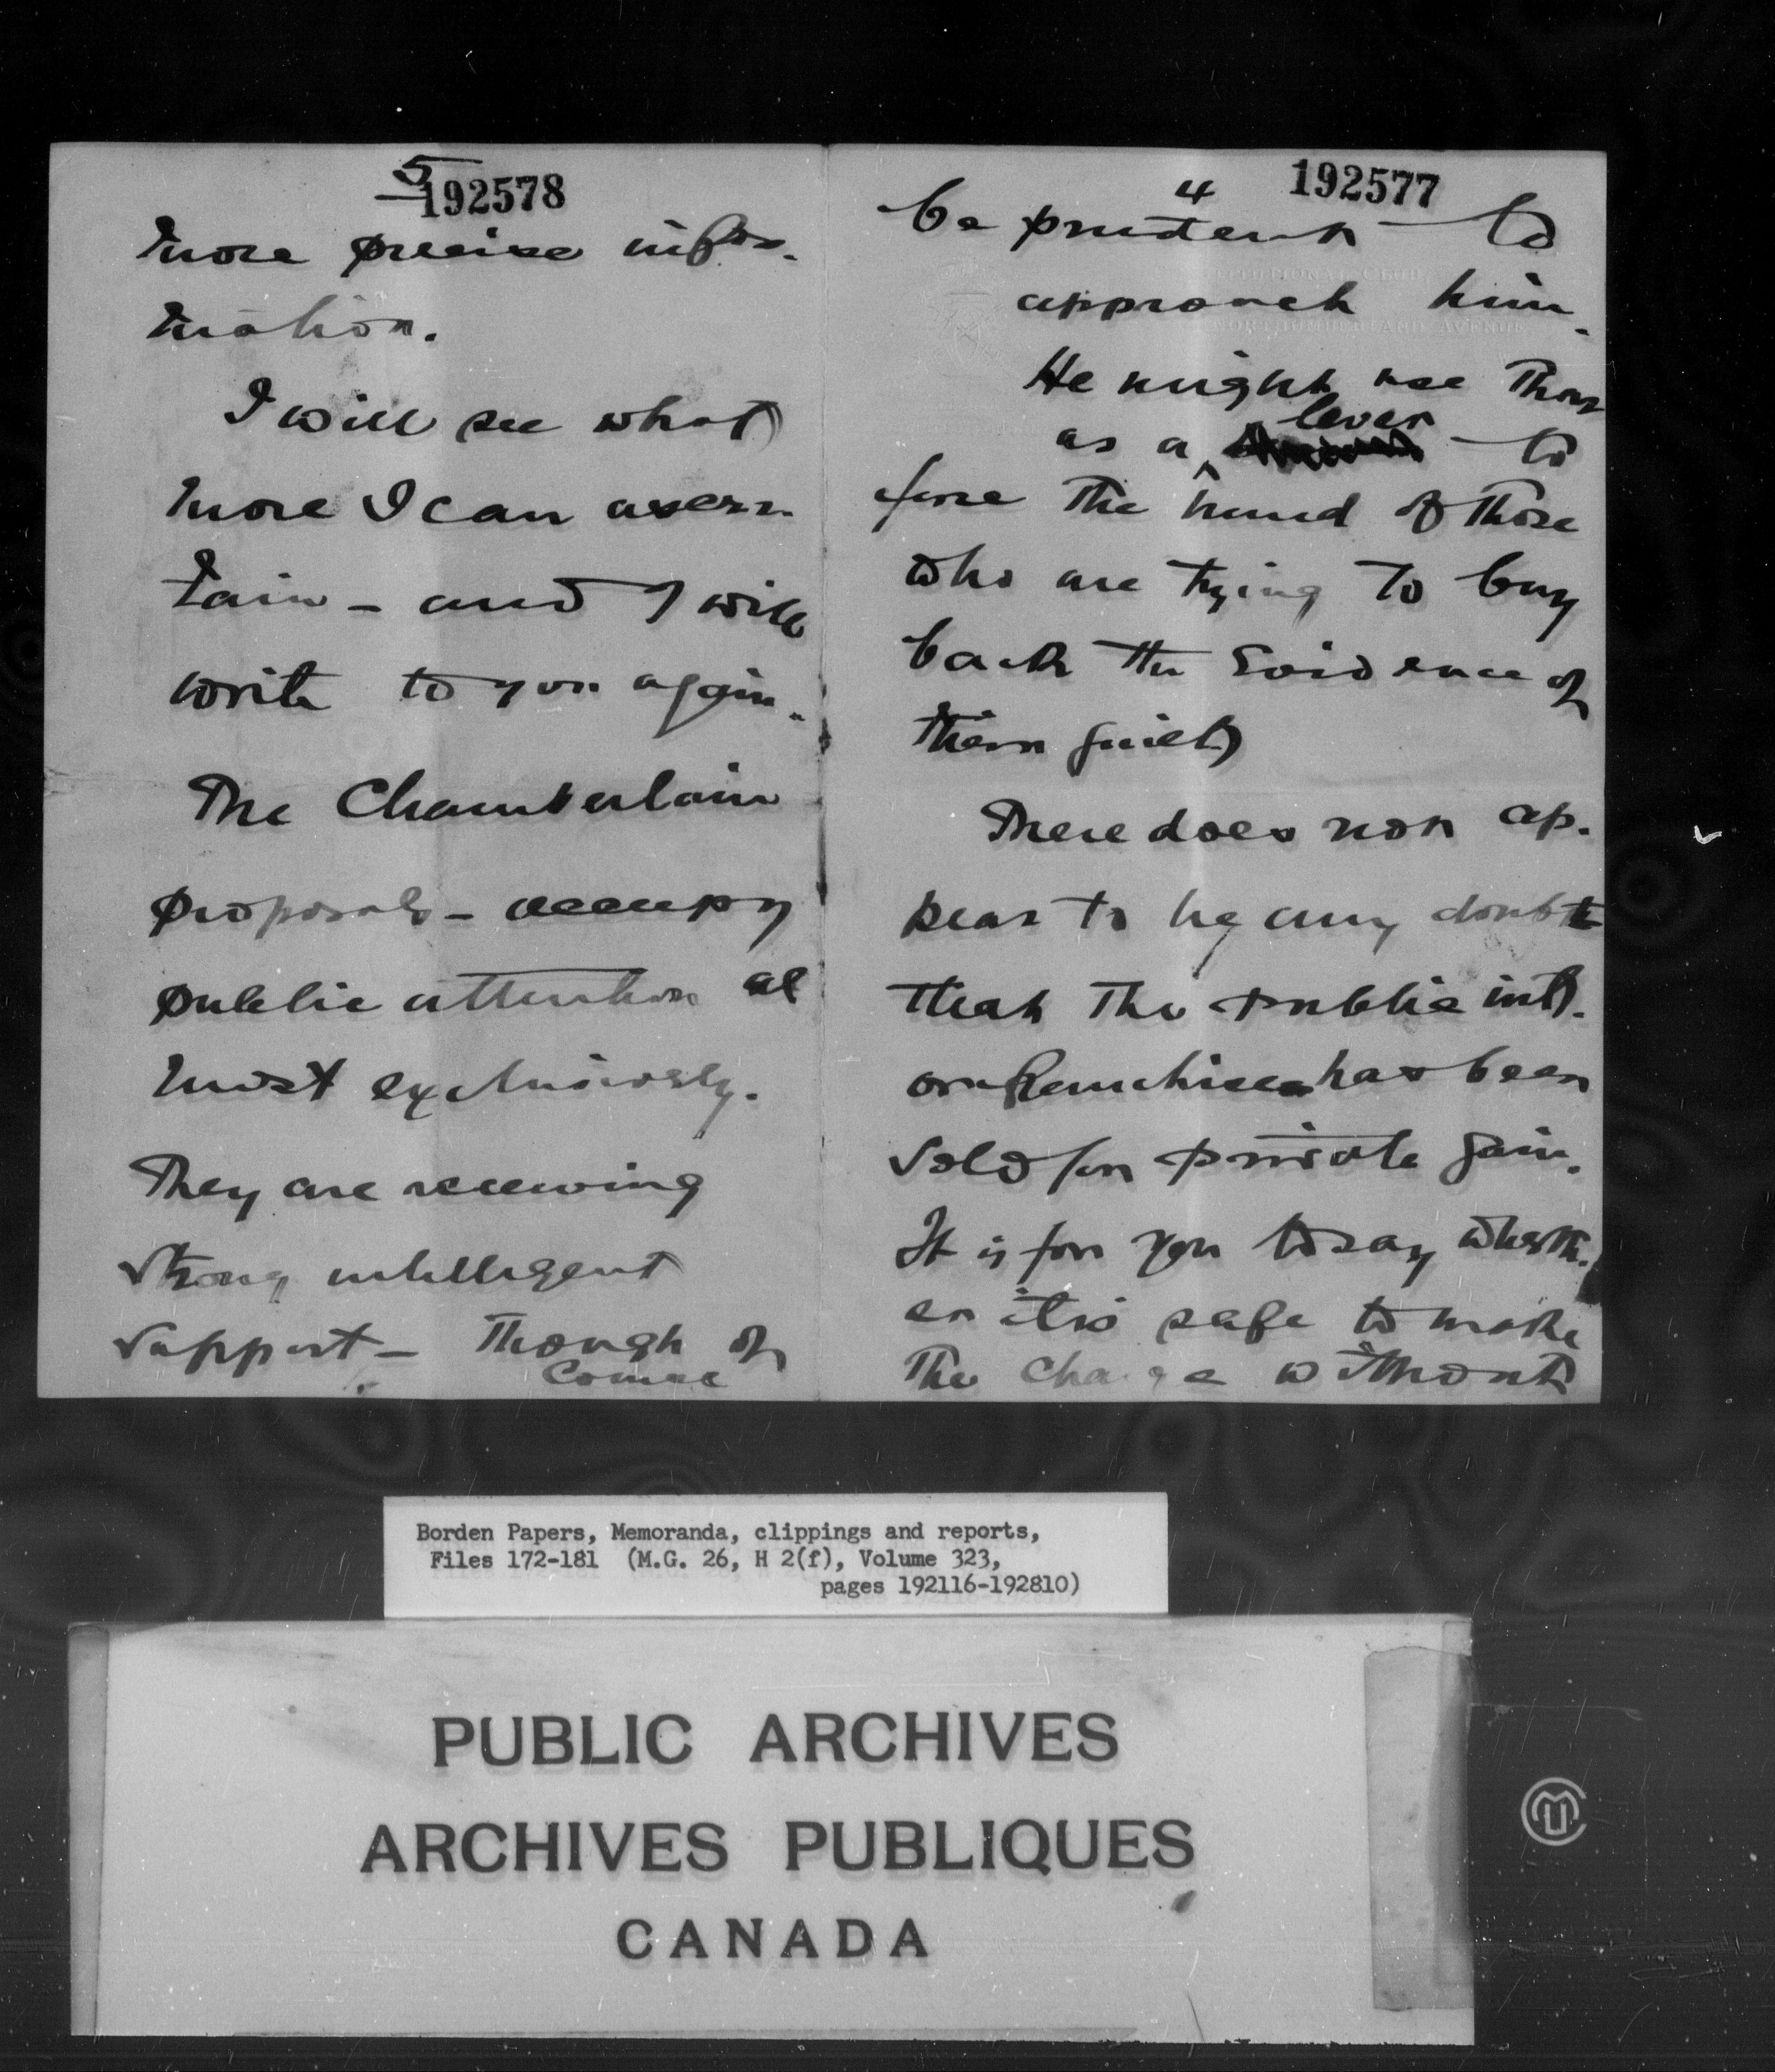 5
192578
more precise infor-
mation.
I will see what
more I can ascer-
tain - and I will
write to you again.
The Chamberlain
proposals - occupy
public attention al
most exclusively.
They are receiving
strong intelligent
support - Though of
course
4
192577
be prudent to
approach him.
CONSTITUTIONAL CLUB,
NORTHUMBERLAND AVENUE.
He might use
lever
as a to
force the hand of those
who are trying to buy
back the Evidence of
their guilt
There does not ap-
pear to be any doubt
that the public
franchise has been
sold for private gain.
It is for you to say wheth-
er it is safe to make
the charge without
Borden Papers, Memoranda, clippings and reports,
Files 172-181 (M.G. 26, H 2(f), Volume 323,
pages 192116-192810)
PUBLIC ARCHIVES
ARCHIVES PUBLIQUES
CANADA